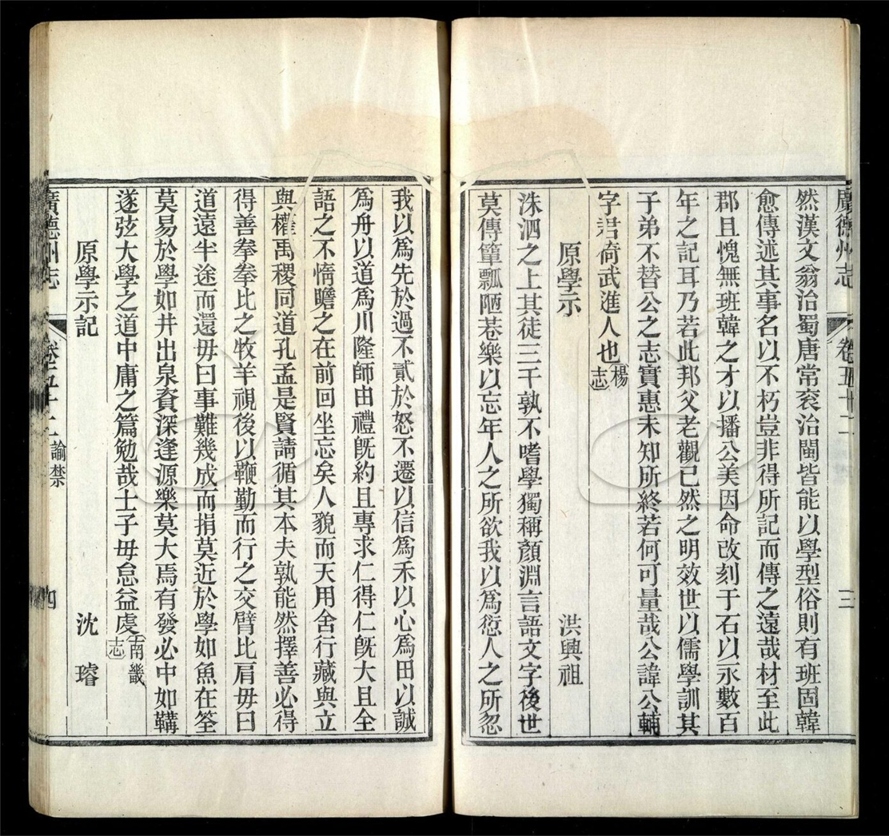 廣德州志
卷五十二
三
然漢文翁治蜀唐常袞治閩皆能以學型俗則有班固韓
愈傳述其事名以不朽豈非得所記而傳之遠哉材至此
郡且愧無班韓之才以播公美因命改刻于石以示數百
年之記耳乃若此邦父老觀已然之明效世以儒學訓其
子弟不替公之志實惠未知所終若何可量哉公諱公輔
字君倚武進人也楊志
原學示
洪興祖
洙泗之上其徒三千孰不嗜學獨稱顏淵言語文字後世
莫傳簞瓢陋巷樂以忘年人之所欲我以為愆人之所忽
我以為先於過不貳於怒不遷以信為禾以心為田以誠
為舟以道為川隆師由禮旣約且專求仁得仁旣大且全
語之不惰瞻之在前回坐忘矣人貌而天用舍行藏與立
與權禹稷同道孔孟是賢請循其本夫孰能然擇善必得
得善拳拳比之牧羊視後以鞭勤而行之交臂比肩毋曰
道遠半途而還毋曰事難幾成而捐莫近於學如魚在筌
莫易於學如井出泉資深逢源樂莫大焉有發必中如韝
遂弦大學之道中庸之篇勉哉士子毋怠益虔南畿志
原學示記
沈璿
廣德州志
卷五十二
諭禁
四